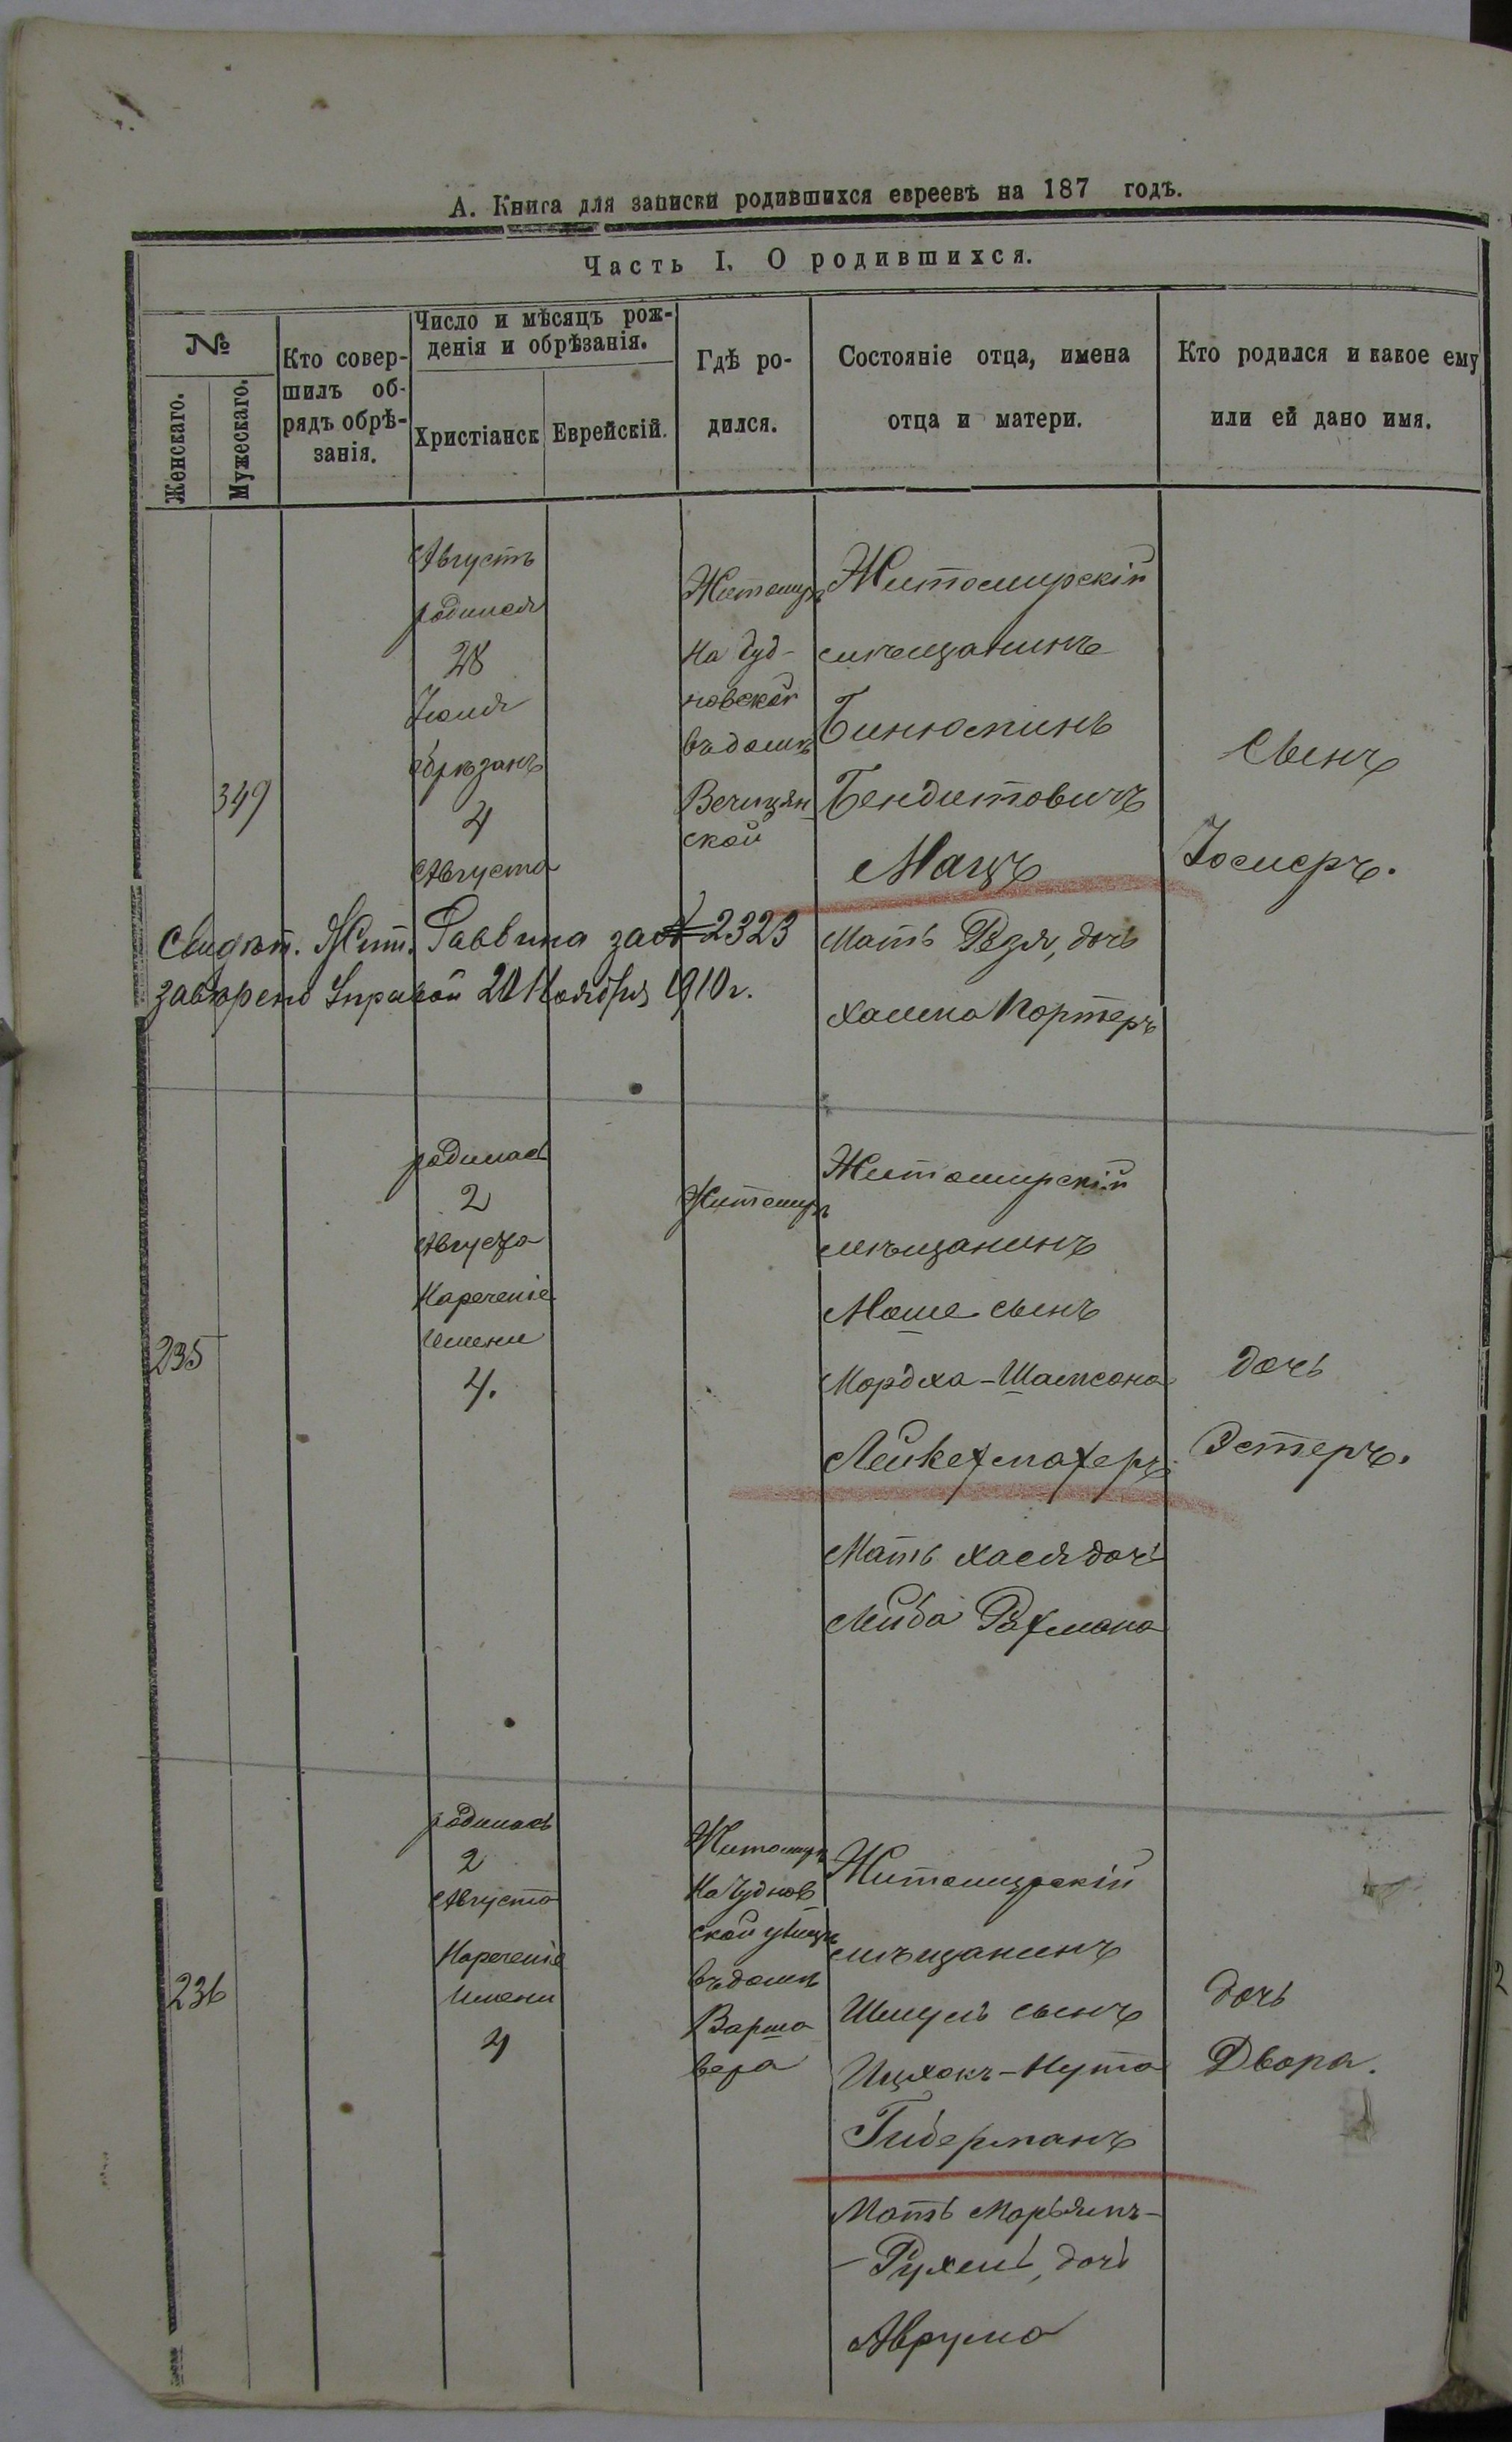 А. Книга для записки родившихся евреевъ на 187 годъ.
Часть I. О родившихся.
№
Женскаго.
Мужескаго.
Кто совер-
шилъ об-
рядъ обрѣ-
занія.
Число и мѣсяцъ рож-
денія и обрѣзанія.
Христіанск
Еврейскій.
Гдѣ ро-
дился.
Состояніе отца, имена
отца и матери.
Кто родился и какое ему
или ей дано имя.
349
Августъ
родился
28
Іюля
обрѣзанъ
4
Августа
Житомиръ
на Чуд-
новской
въ домѣ
ской
Житомирскій
мѣщанинъ
Бинюминъ
Бендитовичъ
Мацъ
Мать Рєзя, дочь
Хаима Портеръ
Сынъ
Іосиеръ.
Свидѣт. Жит. Раввина за № 2323
завѣрено Управой 20 Ноября 1910 г.
235
родилась
2
Августа
Нареченіе
имени
4.
Житомиръ
Житомирскій
мѣщанинъ
Моше сынъ
Мордха-Шамсона
Лейкехмахеръ
Мать Хася дочь
Лейба Рахмана
дочь
Эстеръ.
236
родилась
2
Августа
Нареченіе
имени
4
Житомиръ
на Чуднов
ской улицѣ
въ домѣ
Варша
вера
Житомирскій
мѣщанинъ
Шмуль сынъ
Ицхокъ-Нута
Гиберманъ
Мать Марьямъ-
-Рухель, дочь
Аврума
дочь
Двора.